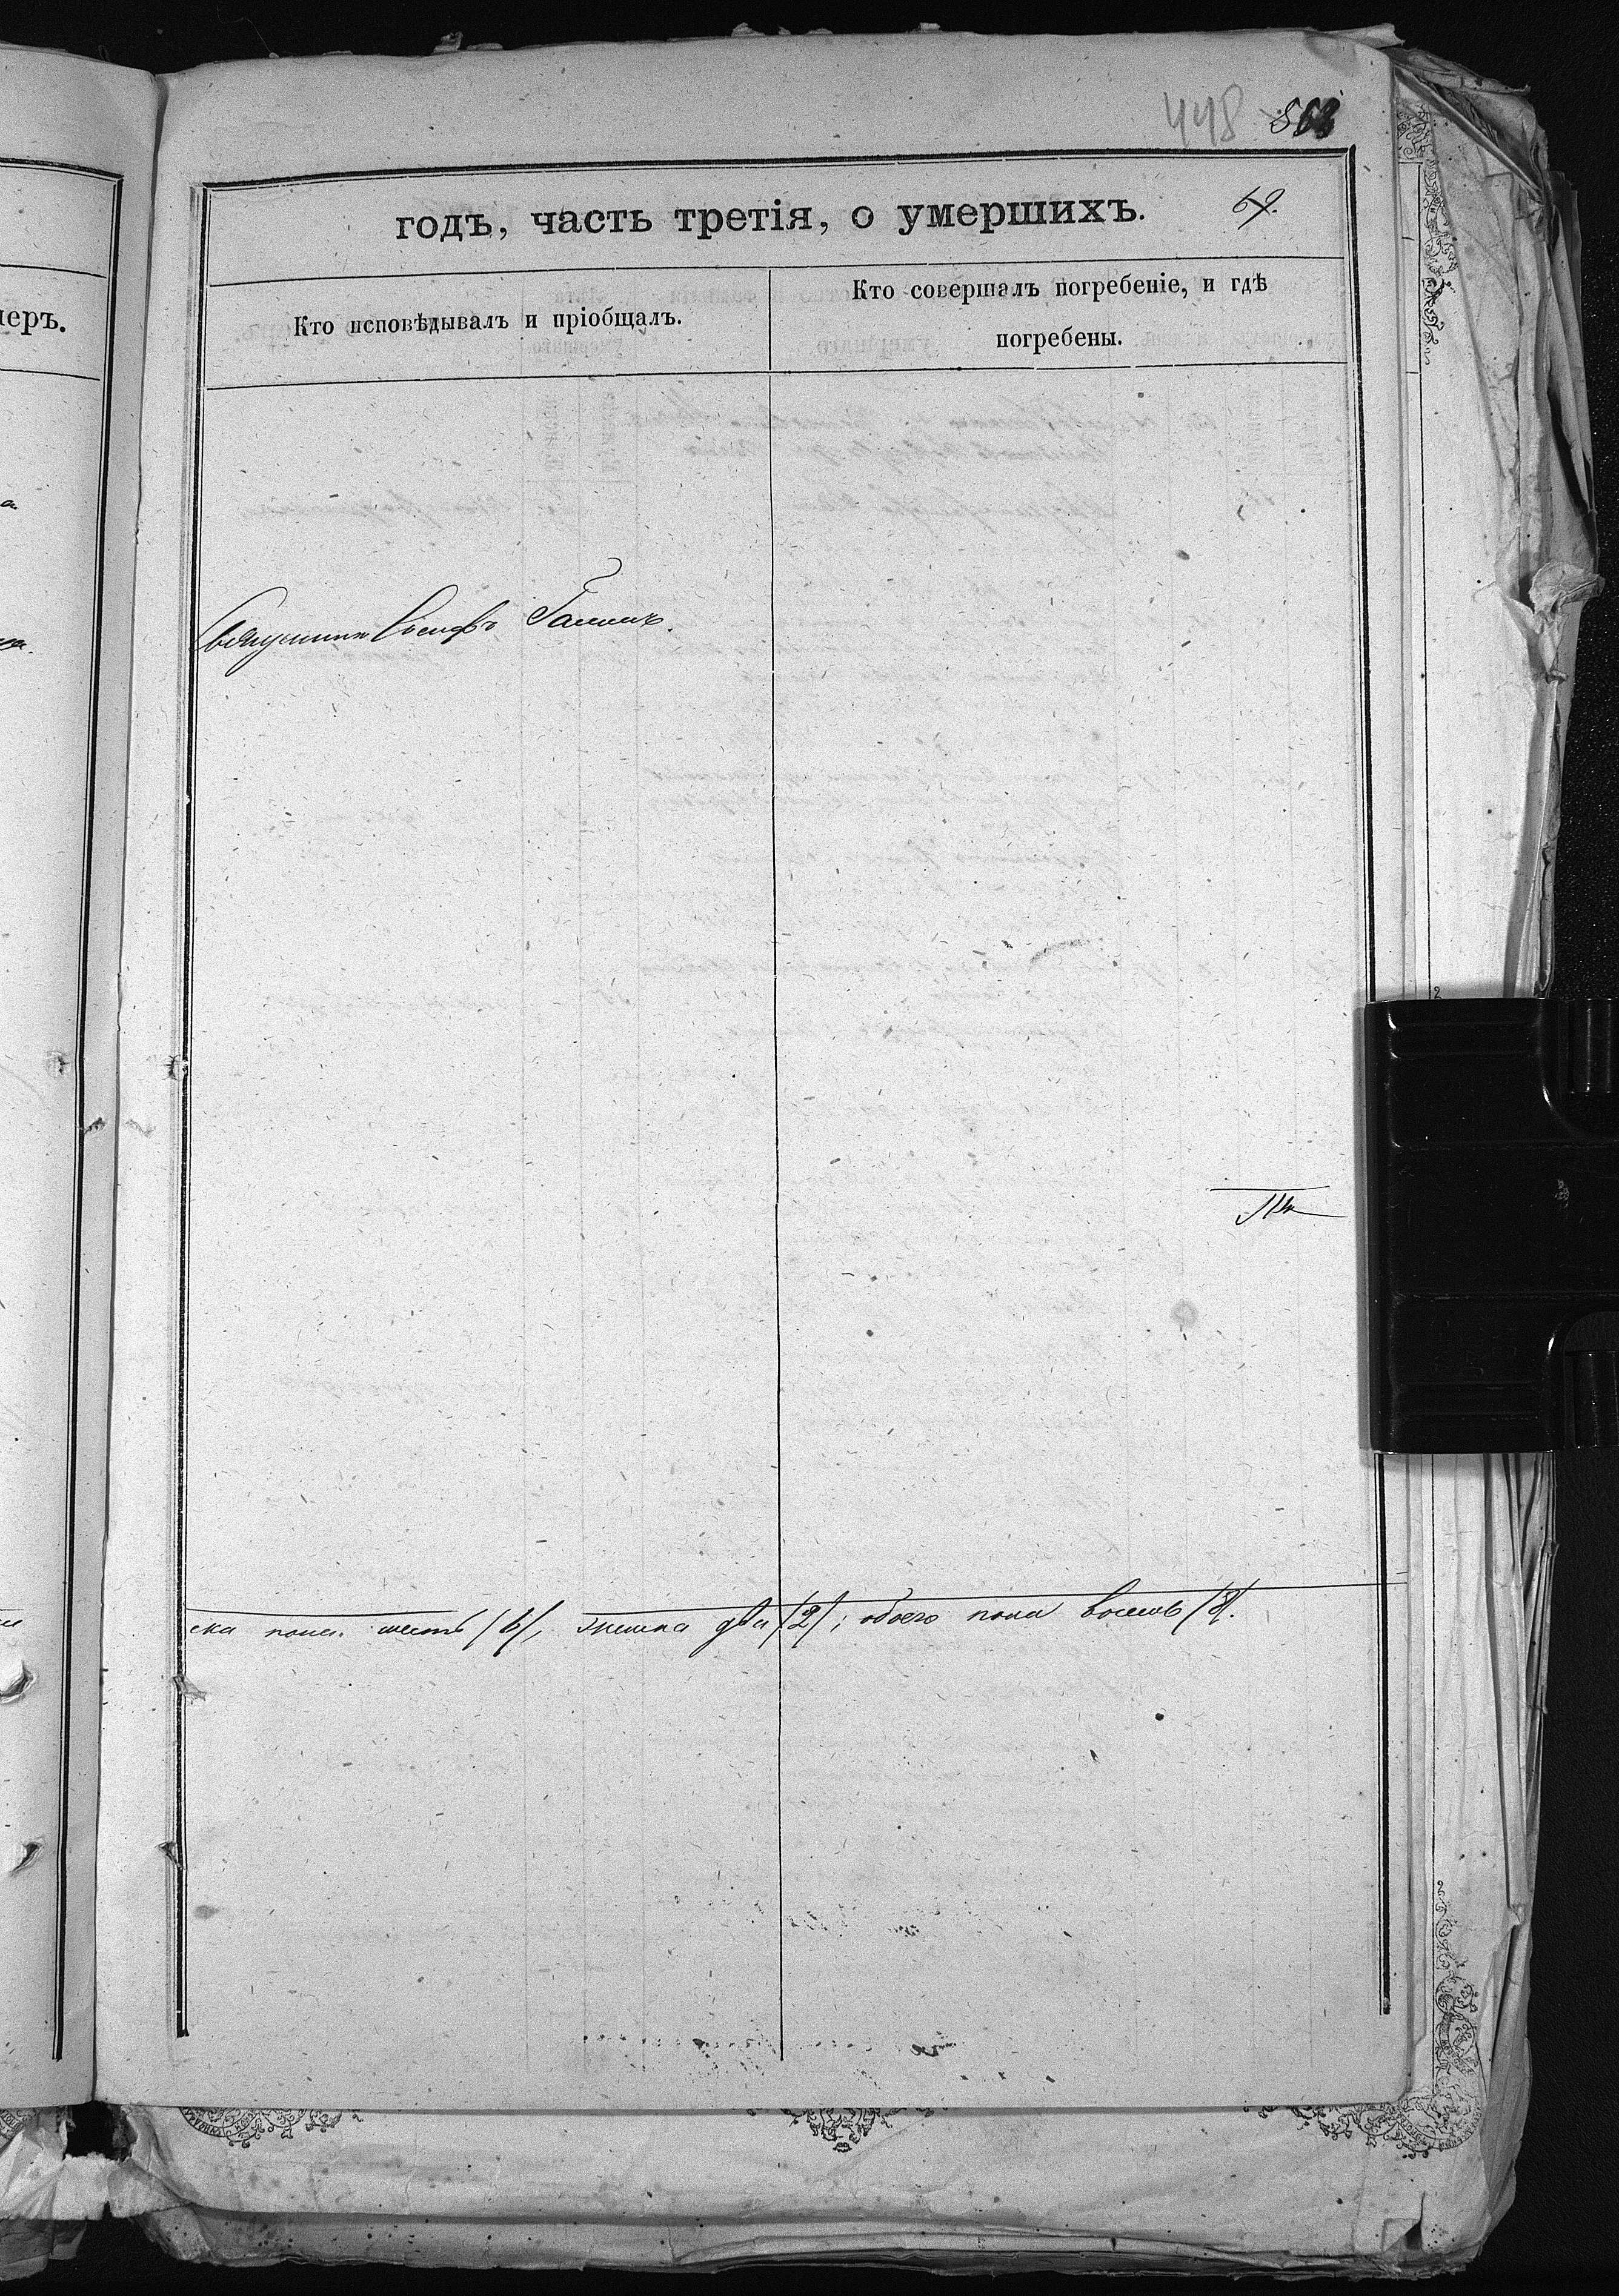 448 568
годъ, часть третія, о умершихъ. 69.
Кто исповѣдывалъ и пріобщалъ.
Кто совершалъ погребеніе, и гдѣ
погребены.
меръ.
Священникъ Іосифъ
ска пола шесть /6/, женска два /2/; обоего пола восемь /8/.